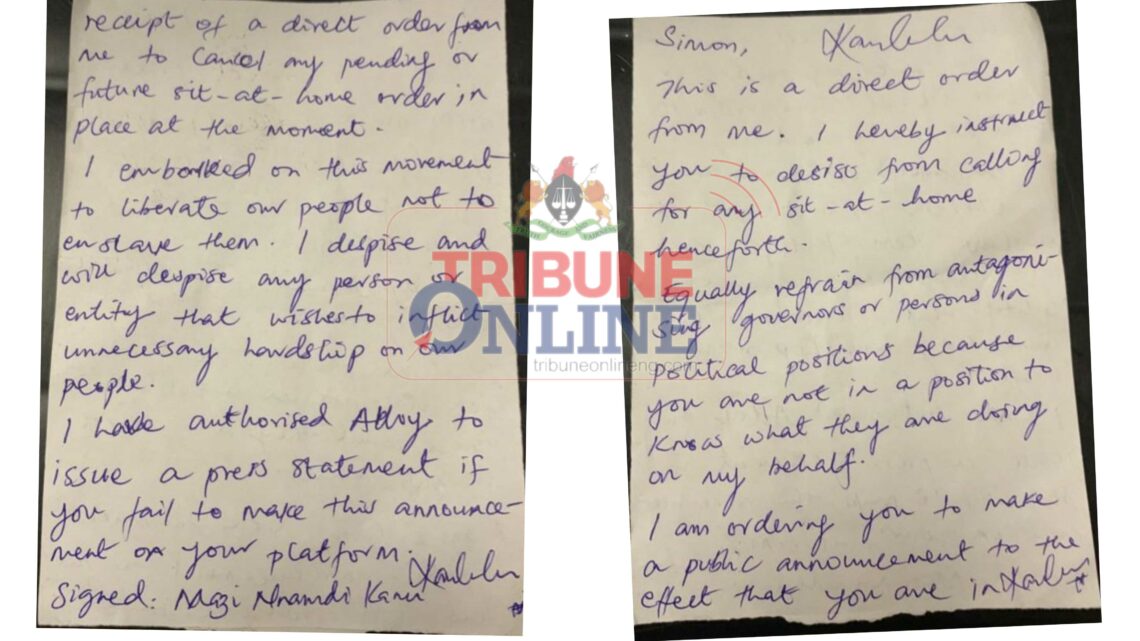 Simon,
This is a direct order
from me. I hereby instruct
you to desist from calling
for any sit-at-home
henceforth.
Equally refrain from antagoni-
sing governors or persons in
political positions because
you are not in a position to
know what they are doing
on my behalf.
I am ordering you to make
a public announcement to the
effect that you are in
receipt of a direct order from
me to cancel any pending or
future sit-at-home order in
place at the moment.
I embarked on this movement
to liberate our people not to
enslave them. I despise and
will despise any person or
entity that wishes to inflict
unnecessary hardship on our
people.
I have authorised Alloy to
issue a press statement if
you fail to make this announce-
ment on your platform.
Signed: Mazi Nnamdi Kanu
TRIBUNE
ONLINE
tribuneonlineng.com